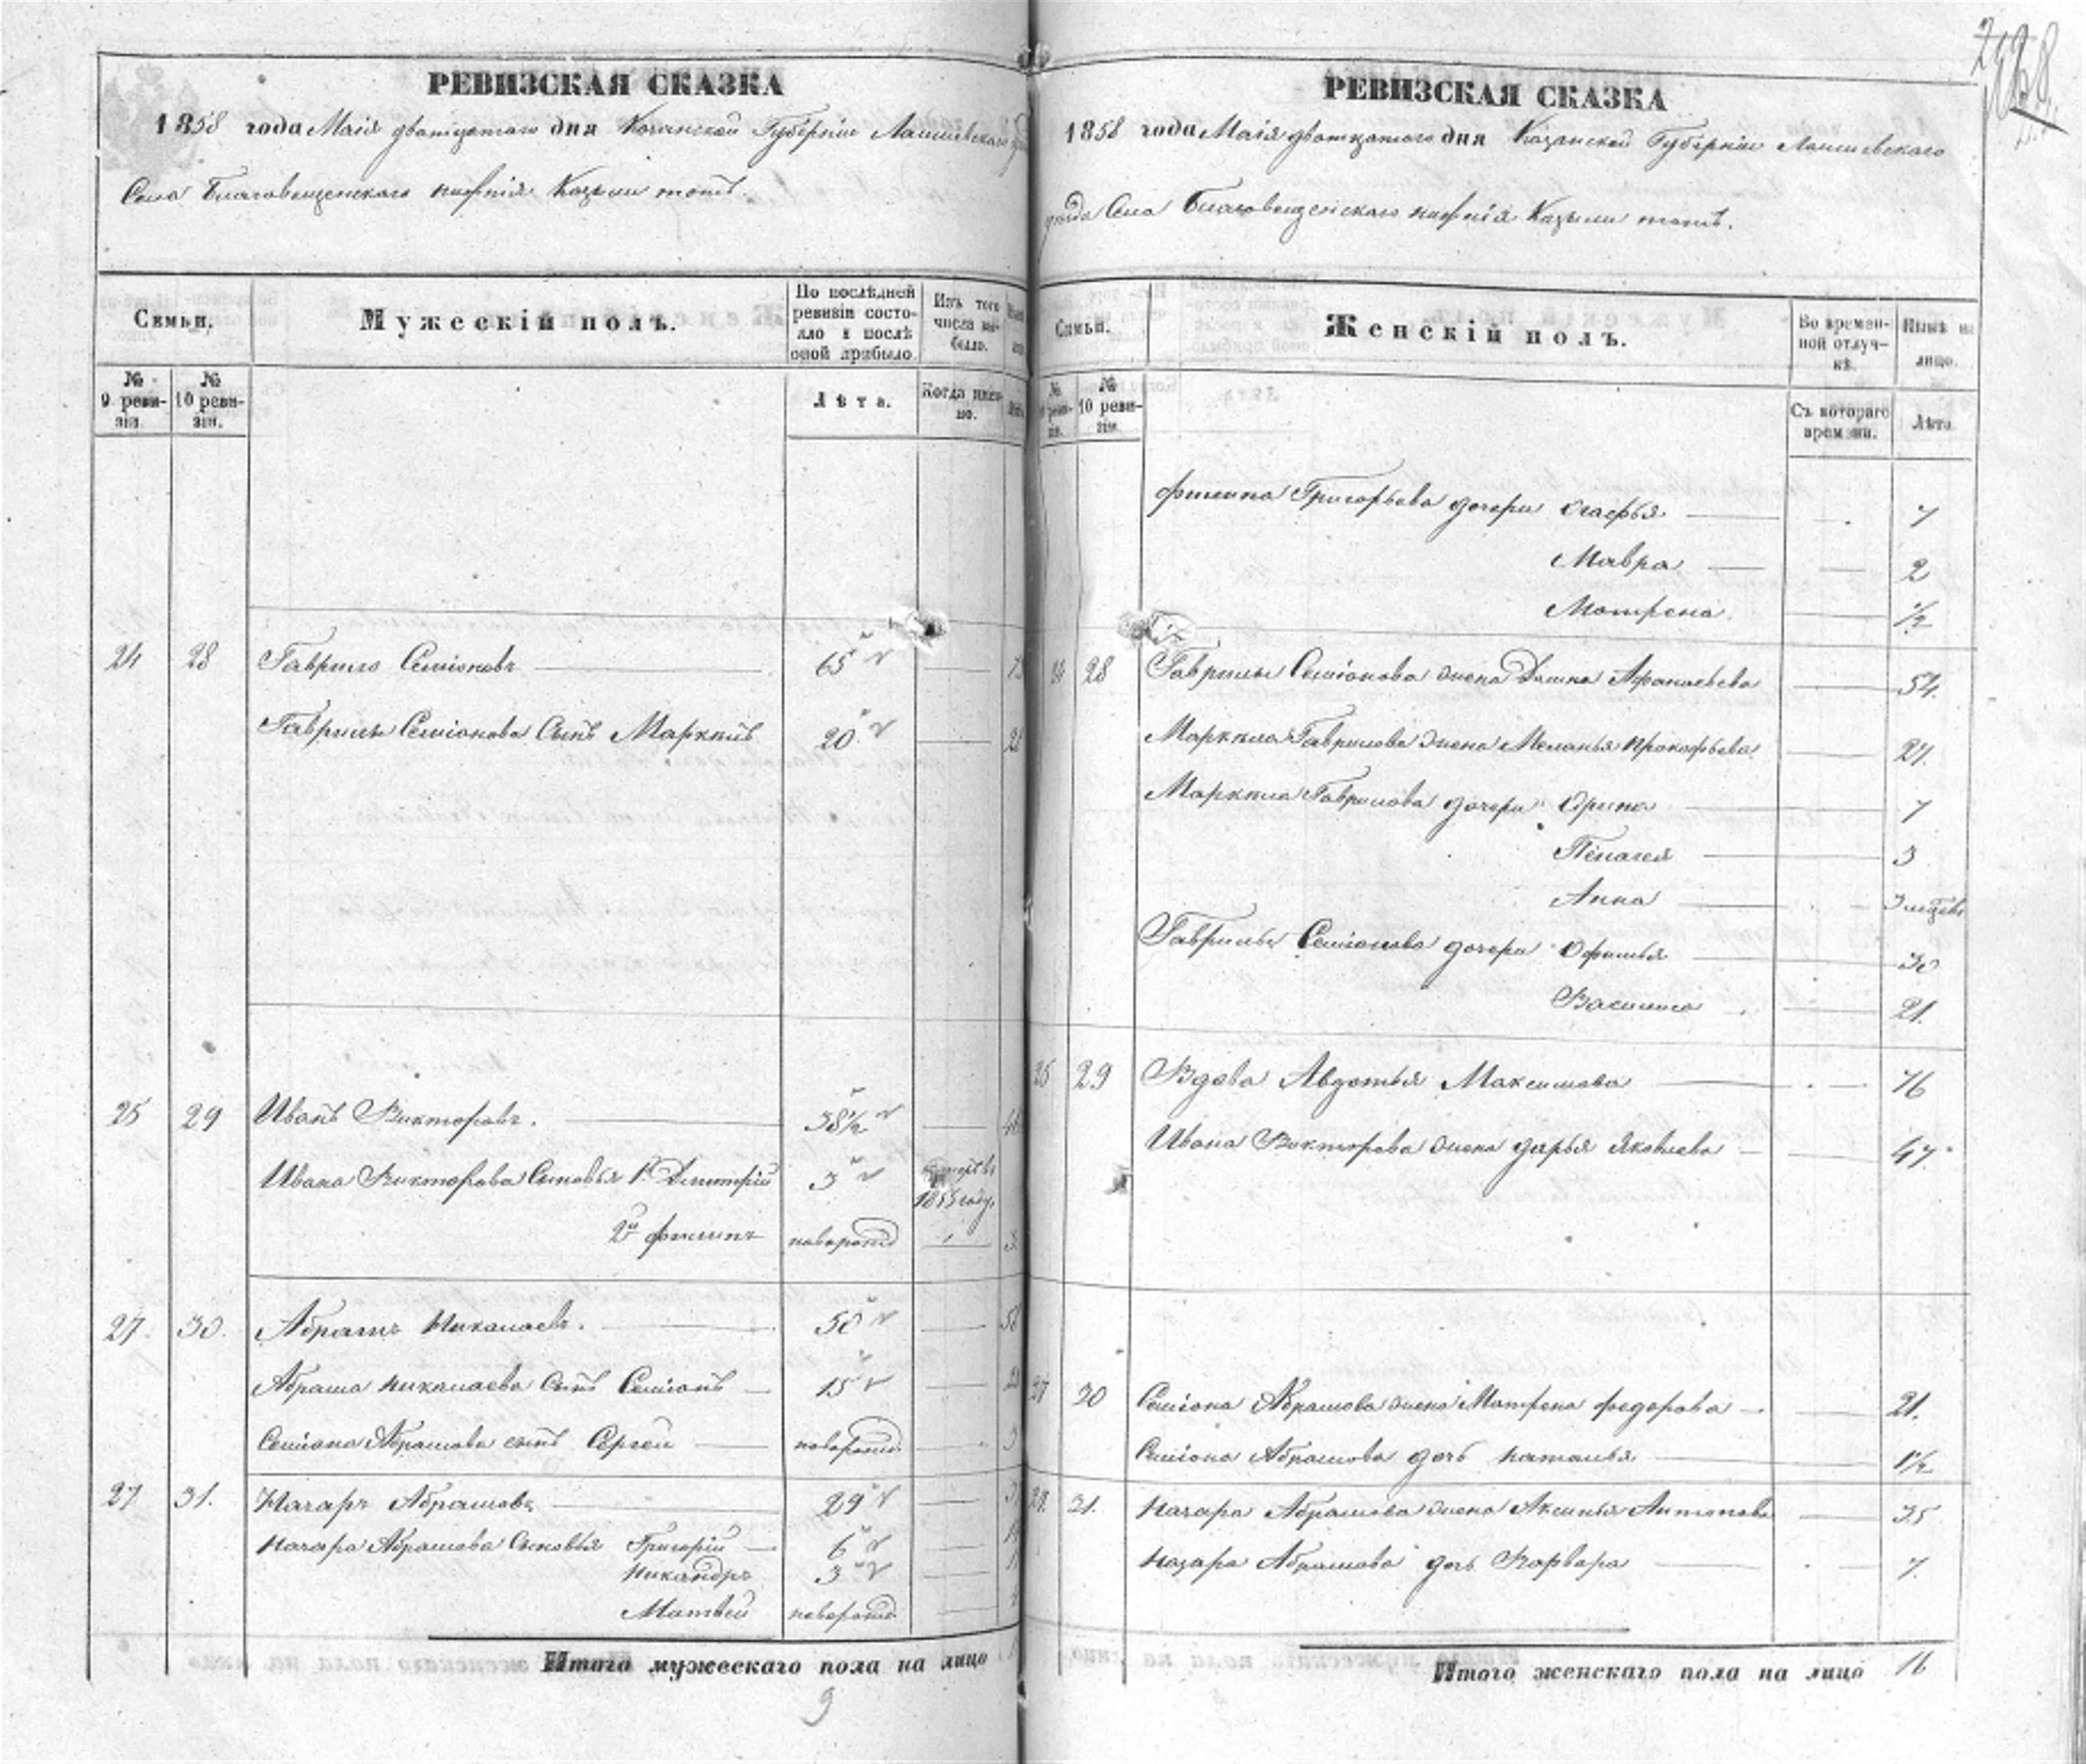 РЕВИЗСКАЯ СКАЗКА
1858 года Маія дватцатого дня Казанской Губерніи Лаишевскаго
Села Благовещенскаго нижнія Казыли тожъ.
Семьи.
Мужескій полъ.
По послѣдней ревизіи состояло и послѣ оной прибыло.
Изъ того числа выбыло.
№ 9 ревизіи.
№ 10 ревизіи.
Лѣта.
Когда именно.
24 28 Гаврило Семіоновъ 65
Гаврилы Семіонова Сынъ Маркелъ 20
25 29 Иванъ Викторовъ. 38½
Ивана Викторова Сыновья 1й Дмитрій 3 умеръ въ 1855 году
2й Филипъ новорожд
27. 30. Абрамъ Николаевъ. 50
Абрама Николаева Сынъ Семіонъ 15
Семіона Абрамова сынъ Сергей новорожд
27 31. Назаръ Абрамовъ 29
Назара Абрамова Сыновья Григорій 6
Никандръ 3
Матвей новорожд
Итого мужескаго пола на лицо
9
228
РЕВИЗСКАЯ СКАЗКА
1858 года Маія дватцатого дня Казанской Губерніи Лаишевскаго
уезда Села Благовещенскаго нижнія Казыли тожъ.
Семьи.
Женскій полъ.
Во временной отлучкѣ.
Нынѣ на лицо.
№ 10 ревизіи.
Съ котораго времени.
Лѣта.
Филипа Григорьева дочери Глафья 7
Мавра 2
Матрена. ½
24 28 Гаврилы Семіонова жена Домна Афанасьева 54.
Маркела Гаврилова жена Меланья Прокофьева 27.
Маркела Гаврилова дочери Орина 7
Пелагея 3
Анна 3 недели
Гаврилы Семіонова дочери Офимья 30
Василиса 21.
25 29 Вдова Авдотья Максимова 76
Ивана Викторова жена дарья Яковлева 47.
27 30 Семіона Абрамова жена Матрена федорова 21.
Семіона Абрамова дочь наталья 1½
27. 31. Назара Абрамова жена Аксинья Антонова 35
Назара Абрамова дочь Варвара 7.
Итого женскаго пола на лицо 16